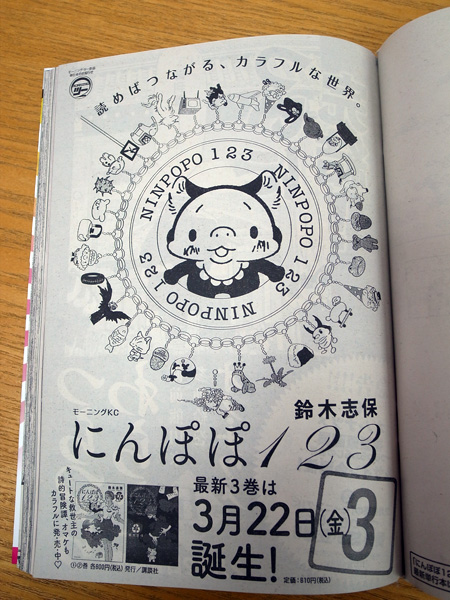 読めばつながる、カラフルな世界。
NINPOPO 123
NINPOPO 123
NINPOPO 123
NINPOPO 123
モーニングKC
鈴木志保
にんぽぽ123
キュートな救世主の
詩的冒険譚、オマケも
カラフルに発・売・中♡
①②巻 各800円(税込) 発行/講談社
最新3巻は
3月22日(金)
誕生!
3
定価:810円(税込)
「にんぽぽ12